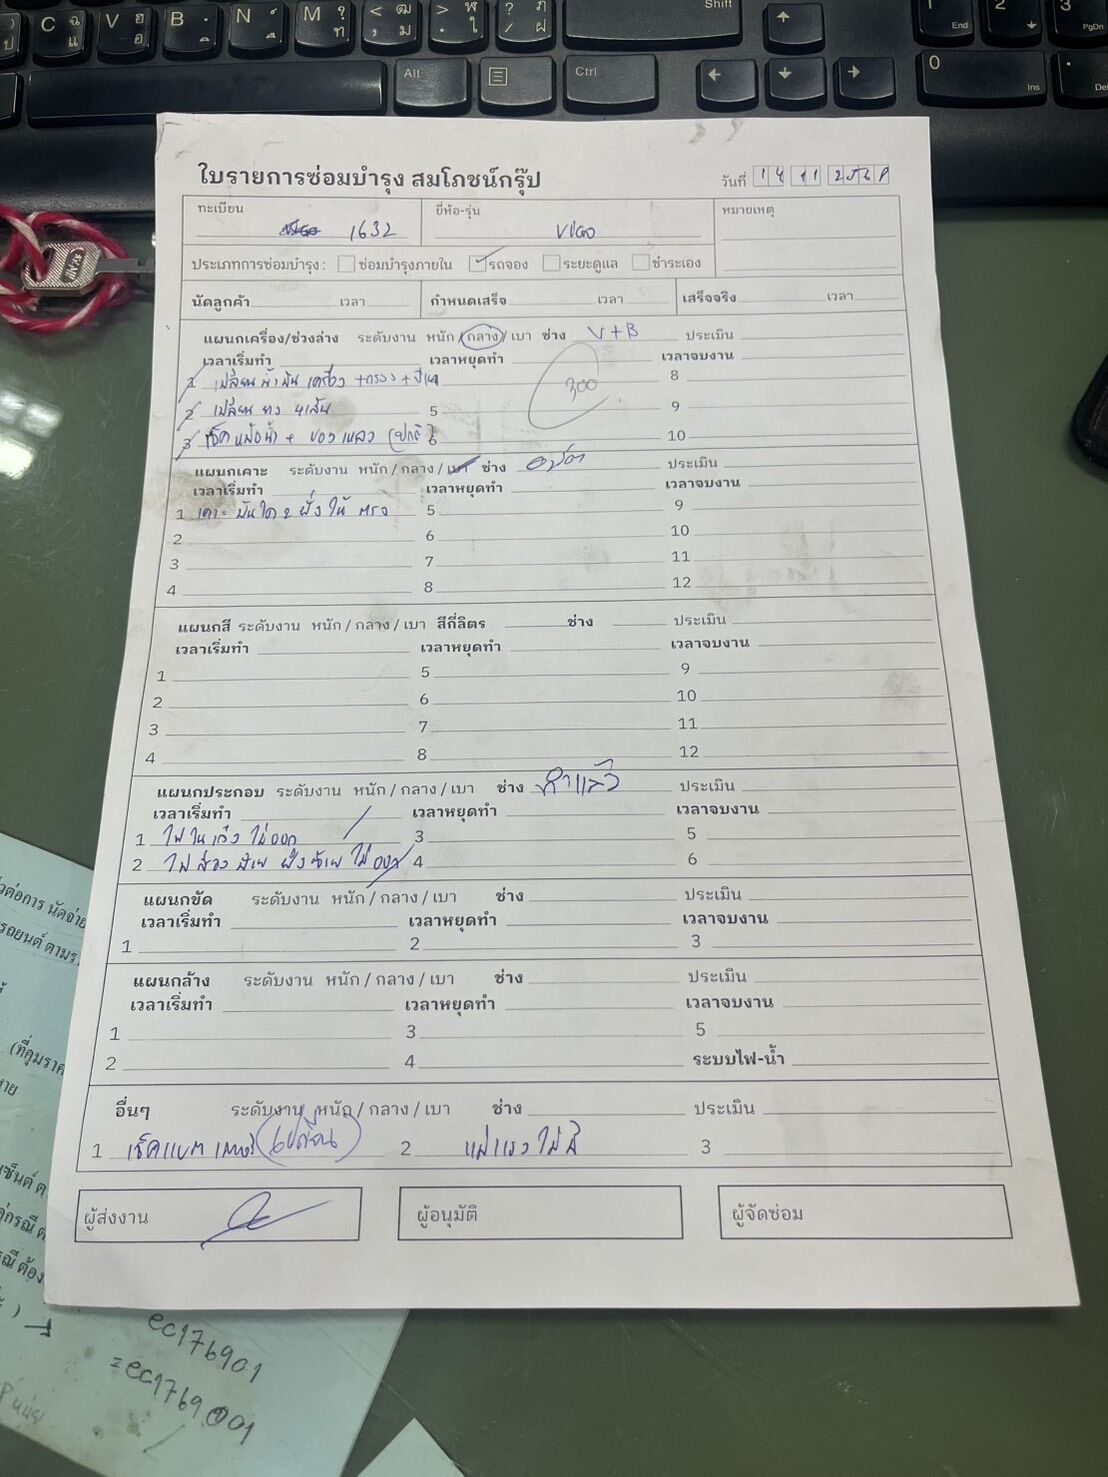 ใบรายการซ่อมบำรุง สมโภชน์กรุ๊ป
วันที่ 14 11 256
ทะเบียน ยี่ห้อ-รุ่น หมายเหตุ
1632 VIGO
ประเภทการซ่อมบำรุง : ซ่อมบำรุงภายใน รถจอง ระยะดูแล ชำระเอง
นัดลูกค้า เวลา กำหนดเสร็จ เวลา เสร็จจริง เวลา
แผนกเครื่อง/ช่วงล่าง ระดับงาน หนัก / กลาง / เบา ช่าง V+B ประเมิน
เวลาเริ่มทำ เวลาหยุดทำ เวลาจบงาน
1 เปลี่ยนน้ำมันเครื่อง + กรอง + 8
300
2 เปลี่ยน ยาง 4เส้น 5 9
3 เช็คหม้อน้ำ + ของเหลว (ปกติ) 6 10
แผนกเคาะ ระดับงาน หนัก / กลาง / เบา ช่าง ประเมิน
เวลาเริ่มทำ เวลาหยุดทำ เวลาจบงาน
1 เคาะ บันได 2 ฝั่ง ให้ ตรง 5 9
2 6 10
3 7 11
4 8 12
แผนกสี ระดับงาน หนัก / กลาง / เบา สีกี่ลิตร ช่าง ประเมิน
เวลาเริ่มทำ เวลาหยุดทำ เวลาจบงาน
1 5 9
2 6 10
3 7 11
4 8 12
แผนกประกอบ ระดับงาน หนัก / กลาง / เบา ช่าง ทำแล้ว ประเมิน
เวลาเริ่มทำ เวลาหยุดทำ เวลาจบงาน
1 ไฟในเก๋ง ไม่ออก 3 5
2 ไฟส่องป้าย ฝั่งซ้าย ไม่ออก 4 6
แผนกขัด ระดับงาน หนัก / กลาง / เบา ช่าง ประเมิน
เวลาเริ่มทำ เวลาหยุดทำ เวลาจบงาน
1 2 3
แผนกล้าง ระดับงาน หนัก / กลาง / เบา ช่าง ประเมิน
เวลาเริ่มทำ เวลาหยุดทำ เวลาจบงาน
1 3 5
2 4 ระบบไฟ-น้ำ
อื่นๆ ระดับงาน หนัก / กลาง / เบา ช่าง ประเมิน
1 เช็คแบตเตอรี่ (เปลี่ยน) 2 แม่แรงไม่มี 3
ผู้ส่งงาน ผู้อนุมัติ ผู้จัดซ่อม
ec176901
=ec1769001